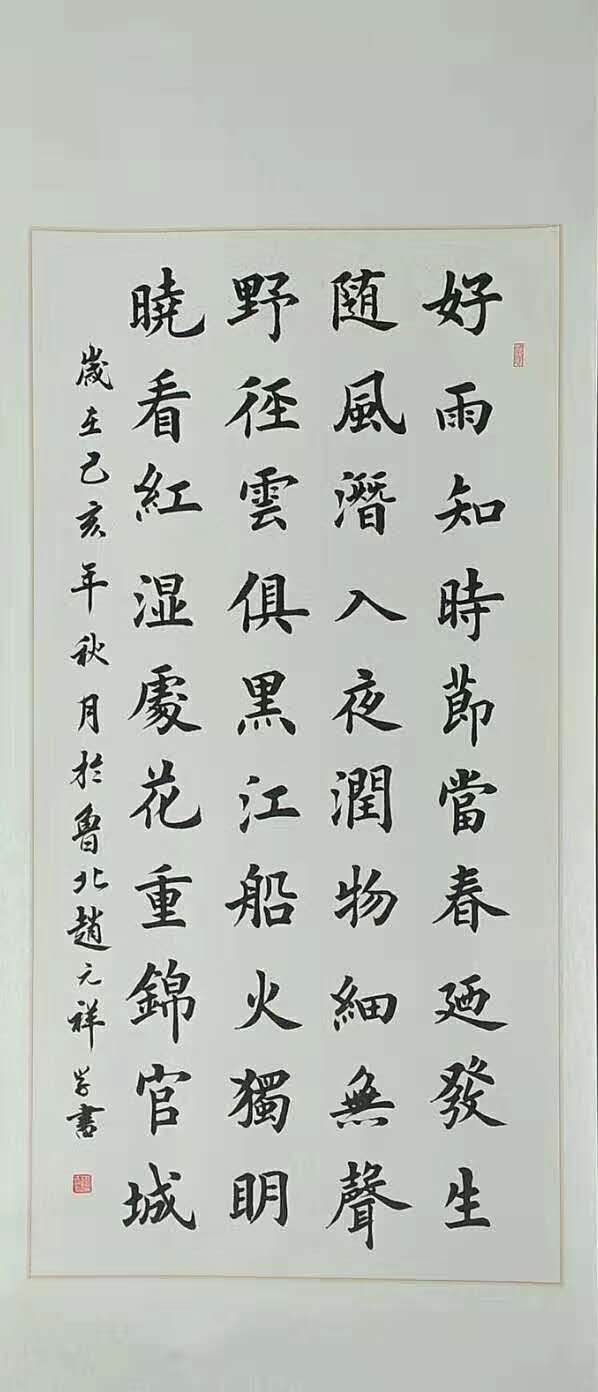 好雨知時節當春廼發生
随風潛入夜潤物細無聲
野徑雲俱黑江船火獨明
曉看紅湿處花重錦官城
歲在己亥年秋月於魯北趙元祥学書